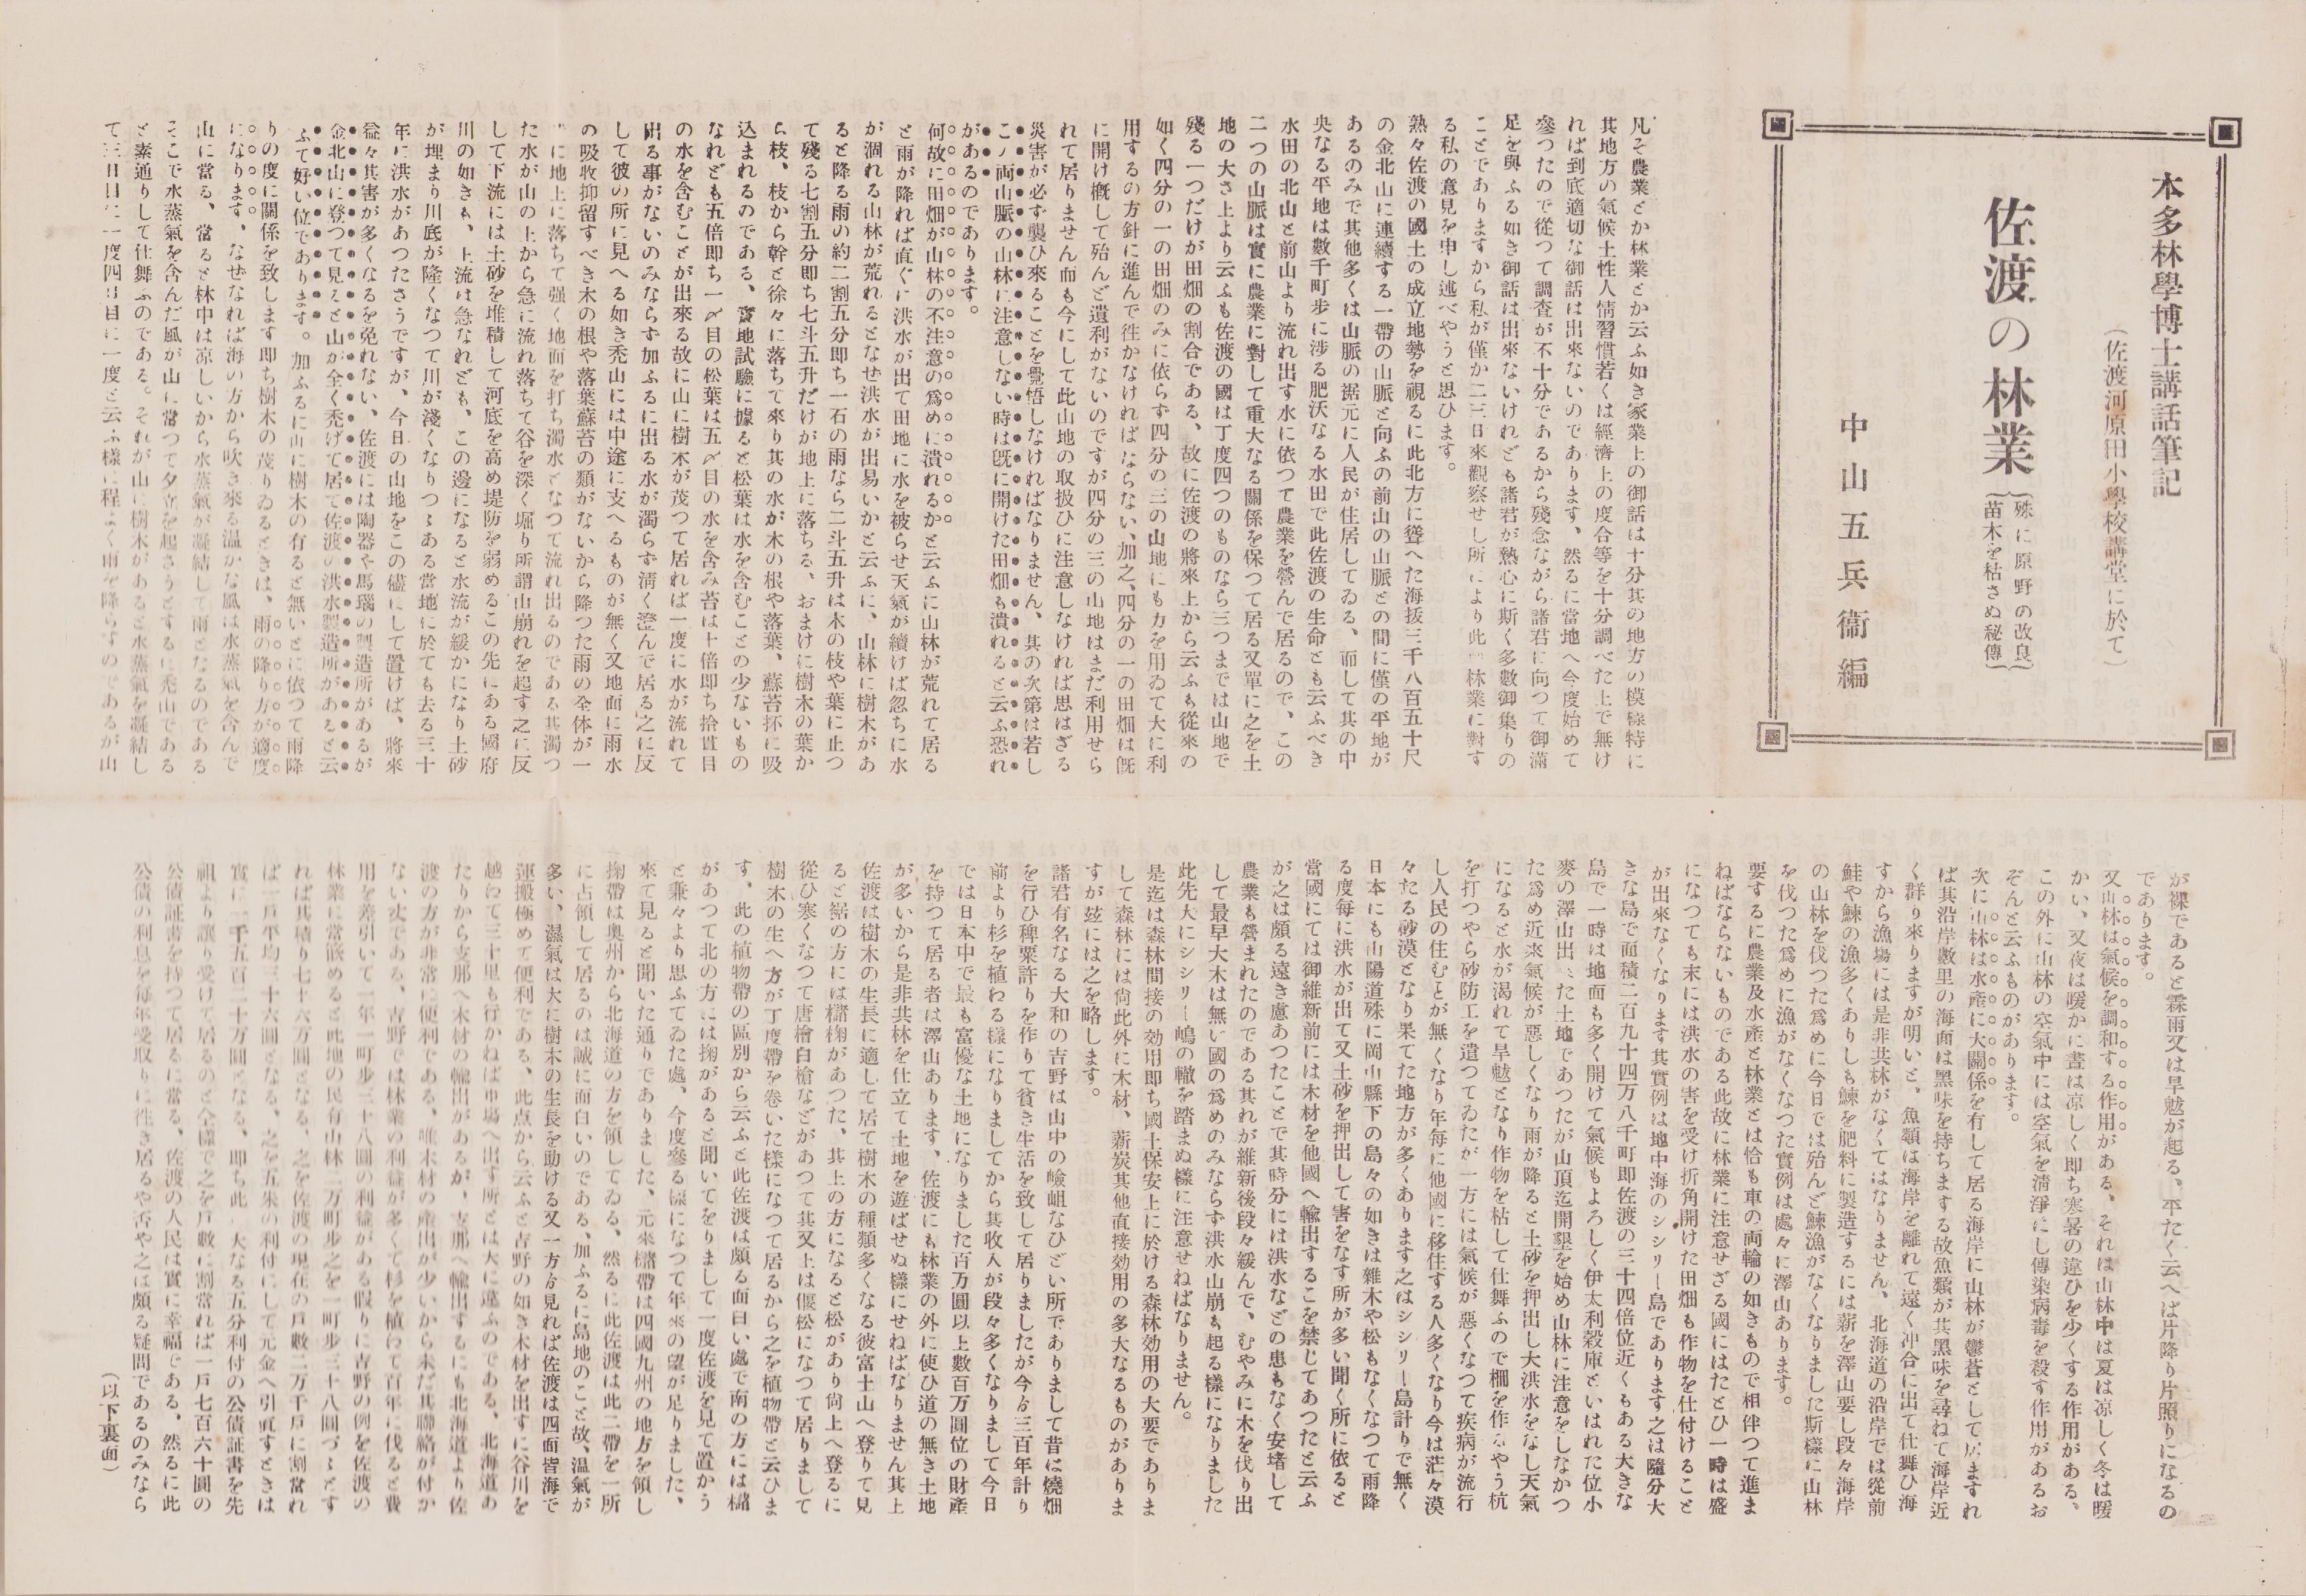 本多林學博士講話筆記
（佐渡河原田小學校講堂に於て）
佐渡の林業
（殊に原野の改良）
（苗木を枯さぬ秘傳）
中山五兵衞編
凡そ農業とか林業とか云ふ如き家業上の御話は十分其の地方の模樣特に
其地方の氣候土性人情習慣若くは經濟上の度合等を十分調べた上で無け
れば到底適切な御話は出來ないのであります、然るに當地へ今度始めて
參つたので從つて調査が不十分であるから殘念ながら諸君に向つて御滿
足を與ふる如き御話は出來ないけれども諸君が熱心に斯く多數御集りの
ことでありますから私が僅か二三日來觀察せし所により此林業に對す
る私の意見を申し述べやうと思ひます。
熟々佐渡の國土の成立地勢を視るに此北方に聳へた海抜三千八百五十尺
の金北山に連續する一帶の山脈と向ふの前山の山脈との間に僅の平地が
あるのみで其他多くは山脈の裾元に人民が住居してゐる、而して其の中
央なる平地は數千町歩に渉る肥沃なる水田で此佐渡の生命とも云ふべき
水田の北山と前山より流れ出す水に依つて農業を營んで居るので、この
二つの山脈は實に農業に對して重大なる關係を保つて居る又單に之を土
地の大さ上より云ふも佐渡の國は丁度四つのものなら三つまでは山地で
殘る一つだけが田畑の割合である、故に佐渡の將來上から云ふも從來の
如く四分の一の田畑のみに依らず四分の三の山地にも力を用ゐて大に利
用するの方針に進んで徃かなければならない、加之、四分の一の田畑は旣
に開け概して殆んど遺利がないのですが四分の三の山地はまだ利用せら
れて居りません而も今にして此山地の取扱ひに注意しなければ思はざる
災害が必ず襲ひ來ることを覺悟しなければなりません、其の次第は若し
こノ両山脈の山林に注意しない時は旣に開けた田畑も潰れると云ふ恐れ
があるのであります。
何故に田畑が山林の不注意の爲めに潰れるかと云ふに山林が荒れて居る
と雨が降れば直ぐに洪水が出て田地に水を被らせ天氣が續けば忽ちに水
が涸れる山林が荒れるとなせ洪水が出易いかと云ふに、山林に樹木があ
ると降る雨の約二割五分即ち一石の雨なら二斗五升は木の枝や葉に止つ
て殘る七割五分即ち七斗五升だけが地上に落ちる、おまけに樹木の葉か
ら枝、枝から幹と徐々に落ちて來り其の水が木の根や落葉、蘇苔抔に吸
込まれるのである、實地試驗に據ると松葉は水を含むことの少ないもの
なれども五倍即ち一〆目の松葉は五〆目の水を含み苔は十倍即ち拾貫目
の水を含むことが出來る故に山に樹木が茂つて居れば一度に水が流れて
出る事がないのみならず加ふるに出る水が濁らず淸く澄んで居る之に反
して彼の所に見へる如き禿山には中途に支へるものが無く又地面に雨水
の吸收抑留すべき木の根や落葉蘇苔の類がないから降つた雨の全体が一
に地上に落ちて强く地面を打ち濁水となつて流れ出るのである其濁つ
た水が山の上から急に流れ落ちて谷を深く堀り所謂山崩れを起す之に反
して下流には土砂を堆積して河底を高め堤防を弱めるこの先にある國府
川の如きも、上流は急なれども、この邊になると水流が緩かになり土砂
が埋まり川底が隆くなつて川が淺くなりつゝある當地に於ても去る三十
年に洪水があつたさうですが、今日の山地をこの儘にして置けば、將來
益々其害が多くなるを免れない、佐渡には陶器や馬瑙の製造所があるが
金北山に登つて見ると山が全く禿げて居て佐渡の洪水製造所があると云
ふて好い位であります。加ふるに山に樹木の有ると無いとに依つて雨降
りの度に關係を致します即ち樹木の茂りゐるときは、雨の降り方が適度
になります、なぜなれば海の方から吹き來る温かな風は水蒸氣を含んで
山に當る、當ると林中は凉しいから水蒸氣が凝結して雨となるのである
そこで水蒸氣を含んだ風が山に當つて夕立を起さうとするに禿山である
と素通りして仕舞ふのである。それが山に樹木があると水蒸氣を凝結し
て三日目に一度四日目に一度と云ふ樣に程よく雨を降らすのであるが山
が裸であると霖雨又は旱魃が起る、平たく云へば片降り片照りになるの
であります。
又山林は氣候を調和する作用がある、それは山林中は夏は凉しく冬は暖
かい、又夜は暖かに晝は凉しく即ち寒暑の違ひを少くする作用がある、
この外に山林の空氣中には空氣を清淨にし傳染病毒を殺す作用があるお
ぞんと云ふものがあります。
次に山林は水產に大關係を有して居る海岸に山林が鬱蒼として居ますれ
ば其沿岸數里の海面は黑味を持ちまする故魚類が其黑味を尋ねて海岸近
く群り來りますが明いと、魚類は海岸を離れて遠く冲合に出て仕舞ひ海
すから漁塲には是非共林がなくてはなりません、北海道の沿岸では從前
鮭や鰊の漁多くありしも鰊を肥料に製造するには薪を澤山要し段々海岸
の山林を伐つた爲めに今日では殆んど鰊漁がなくなりました斯樣に山林
を伐つた爲めに漁がなくなつた實例は處々に澤山あります。
要するに農業及水產と林業とは恰も車の両輪の如きもので相伴つて進ま
ねばならないものである此故に林業に注意せざる國にはたとひ一時は盛
になつても末には洪水の害を受け折角開けた田畑も作物を仕付けること
が出來なくなります其實例は地中海のシシリー島であります之は隨分大
きな島で面積二百九十四万八千町即佐渡の三十四倍位近くもある大きな
島で一時は地面も多く開けて氣候もよろしく伊太利穀庫といはれた位小
麥の澤山出來た土地であつたが山頂迄開墾を始め山林に注意をしなかつ
た爲め近來氣候が惡しくなり雨が降ると土砂を押出し大洪水をなし天氣
になると水が渴れて旱魃となり作物を枯して仕舞ふので棚を作るやう杭
を打つやら砂防工を遣つてゐたが一方には氣候が惡くなつて疾病が流行
し人民の住むとが無くなり年每に他國に移住する人多くなり今は茫々漠
々たる砂漠となり果てた地方が多くあります之はシシリー島計りで無く
日本にも山陽道殊に岡山縣下の島々の如きは雜木や松もなくなつて雨降
る度每に洪水が出て又土砂を押出して害をなす所が多い聞く所に依ると
當國にては御維新前には木材を他國へ輸出するこを禁じてあつたと云ふ
が之は頗る遠き慮あつたことで其時分には洪水などの患もなく安堵して
農業も營まれたのである其れが維新後段々緩んで、むやみに木を伐り出
して最早大木は無い國の爲めのみならず洪水山崩も起る樣になりました
此先大にシシリー嶋の轍を踏まぬ樣に注意せねばなりません。
是迄は森林間接の効用即ち國土保安上に於ける森林効用の大要でありま
して森林には尙此外に木材、薪炭其他直接効用の多大なるものがありま
すが玆には之を略します。
諸君有名なる大和の吉野は山中の嶮岨なひどい所でありまして昔は燒畑
を行ひ稗粟許りを作りて貧き生活を致して居りましたが今ゟ三百年計り
前より杉を植わる樣になりましてから其收入が段々多くなりまして今日
では日本中で最も富優な土地になりました百万圓以上數百万圓位の財產
を持つて居る者は澤山あります、佐渡にも林業の外に使ひ道の無き土地
が多いから是非共林を仕立て土地を遊ばせぬ樣にせねばなりません其上
佐渡は樹木の生長に適して居て樹木の種類多くなる彼富士山へ登りて見
ると裾の方には櫧椈があつた、其上の方になると松があり尙上へ登るに
從ひ寒くなつて唐檜白檜などがあつて其又上は偃松になつて居りまして
樹木の生へ方が丁度帶を卷いた樣になつて居るから之を植物帶と云ひま
す、此の植物帶の區別から云ふと此佐渡は頗る面白い處で南の方には櫧
があつて北の方には椈があると聞いてをりまして一度佐渡を見て置かう
と兼々より思ふてゐた處、今度參る樣になつて年來の望が足りました、
來て見ると聞いた通りでありました、元來櫧帶は四國九州の地方を領し
椈帶は奧州から北海道の方を領してゐる、然るに此佐渡は此二帶を一所
に占領して居るのは誠に面白いのである、加ふるに島地のこと故、温氣が
多い、濕氣は大に樹木の生長を助ける又一方ゟ見れば佐渡は四面皆海で
運搬極めて便利である、此点から云ふと吉野の如き木材を出すに谷川を
越わて三十里も行かねば市場へ出す所とは大に違ふのである、北海道あ
たりから支那へ木材の輸出があるが、支那へ輸出するにも北海道より佐
渡の方が非常に便利である、唯木材の產出が少いから未だ其聯絡が付か
ない丈である、吉野では林業の利益が多くて杉を植わて百年に伐ると費
用を差引いて一年一町步三十八圓の利益がある假りに吉野の例を佐渡の
林業に當嵌めると此地の民有山林二万町步之を一町步三十八圓づゝとす
れば其積り七十六万圓となる、之を佐渡の現在の戶數二万千戶に割當れ
ば一戶平均三十六圓となる、之を五朱の利付にして元金へ引直すときは
實に一千五百二十万圓となる、即ち此大なる五分利付の公債証書を先
祖より讓り受けて居るのと全樣で之を戶數に割當れば一戶七百六十圓の
公債証書を持つて居るに當る、佐渡の人民は實に幸福である、然るに此
公債の利息を每年受取りに徃き居るや否や之は頗る疑問であるのみなら
（以下裏面）